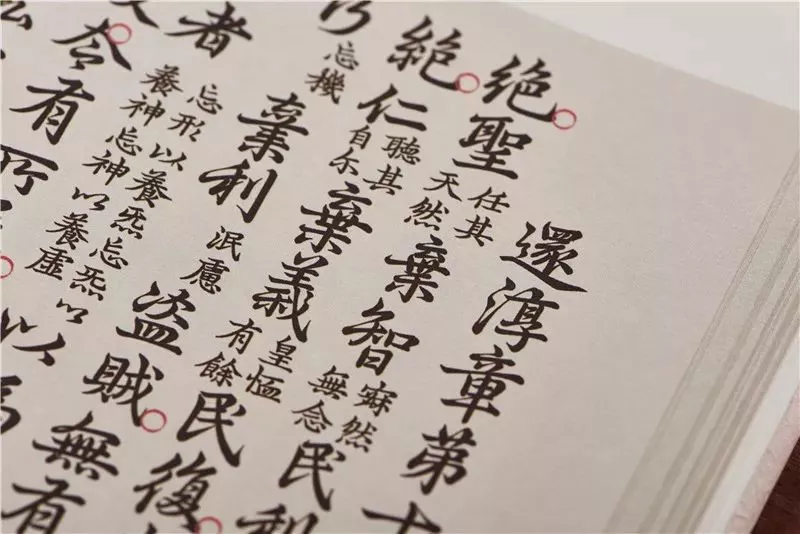 還淳章第十
绝聖任其天然棄智寂然無念民利
絕仁聽其自尔棄義皇恤有餘民復
巧忘機棄利泯慮盜賊無有
者忘形以養炁忘炁以養神忘神以養虛以為
令有所